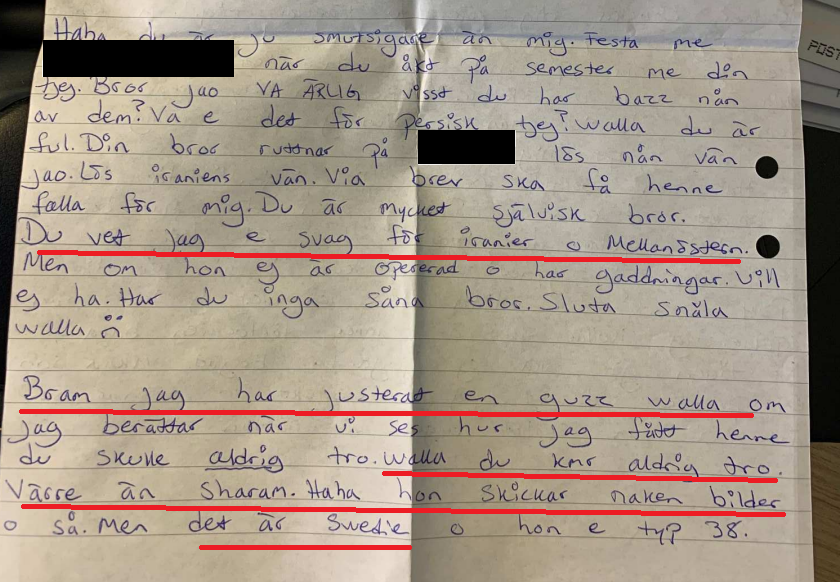 Haha du är ju smutsigare än mig. Festa me
när du åkt på semester me din
tjej. Bror jao VA ÄRLIG visst du har bazz nån
av dem? Va e det för persisk tjej? Walla du är
ful. Din bror ruttnar på lös nån vän
jao. Lös iraniens vän. Via brev ska få henne
falla för mig. Du är mycket självisk bror.
Du vet jag e svag för iranier o Mellanöstern.
Men om hon ej är opererad o har gaddningar. Vill
ej ha. Har du inga såna bror. Sluta snåla
walla
Bram jag har justerat en guzz walla om
jag berättar när vi ses hur jag fått henne
du skulle aldrig tro. Walla du kmr aldrig tro.
Värre än Sharam. Haha hon skickar naken bilder
o så. Men det är Swedie o hon e typ 38.
POST